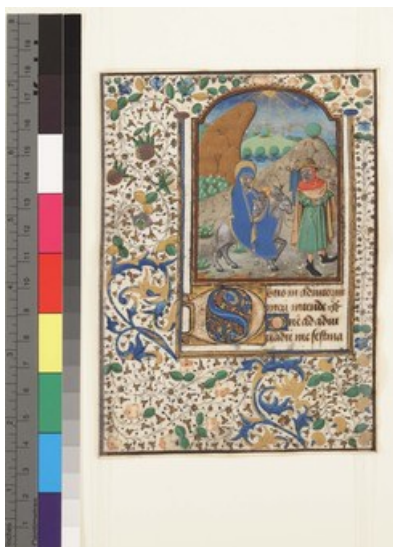 Deus in adiutoriu
meu intende do
mine ad adiu
uadu me festina